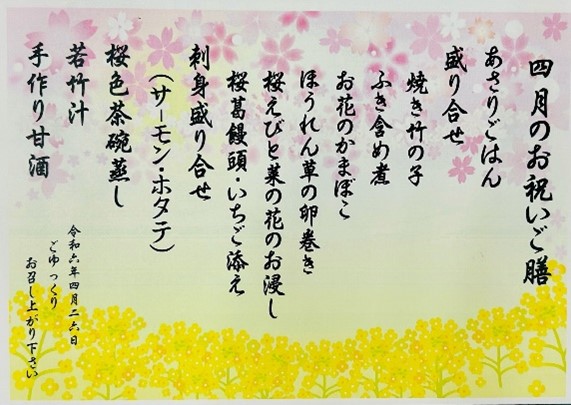 四月のお祝いご膳
あさりごはん
盛り合せ
焼き竹の子
ふき含め煮
お花のかまぼこ
ほうれん草の卵巻き
桜えびと菜の花のお浸し
桜葛饅頭・いちご添え
刺身盛り合せ
(サーモン・ホタテ)
桜色茶碗蒸し
若竹汁
手作り甘酒
令和六年四月二六日
ごゆっくり
お召し上がり下さい